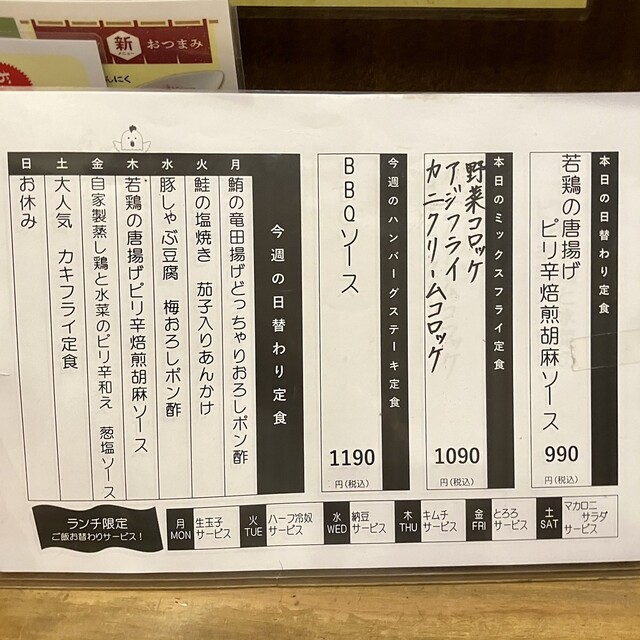 新
おつまみ
んにく
本日の日替わり定食
若鶏の唐揚げ
ピリ辛焙煎胡麻ソース
990
円(税込)
本日のミックスフライ定食
野菜コロッケ
アジフライ
カニクリームコロッケ
1090
円(税込)
今週のハンバーグステーキ定食
BBQソース
1190
円(税込)
今週の日替わり定食
月 鮪の竜田揚げどっちゃりおろしポン酢
火 鮭の塩焼き 茄子入りあんかけ
水 豚しゃぶ豆腐 梅おろしポン酢
木 若鶏の唐揚げピリ辛焙煎胡麻ソース
金 自家製蒸し鶏と水菜のピリ辛和え 葱塩ソース
土 大人気 カキフライ定食
日 お休み
ランチ限定
ご飯お替わりサービス!
月 MON 生玉子 サービス
火 TUE ハーフ冷奴 サービス
水 WED 納豆 サービス
木 THU キムチ サービス
金 FRI とろろ サービス
土 SAT マカロニ サラダ サービス